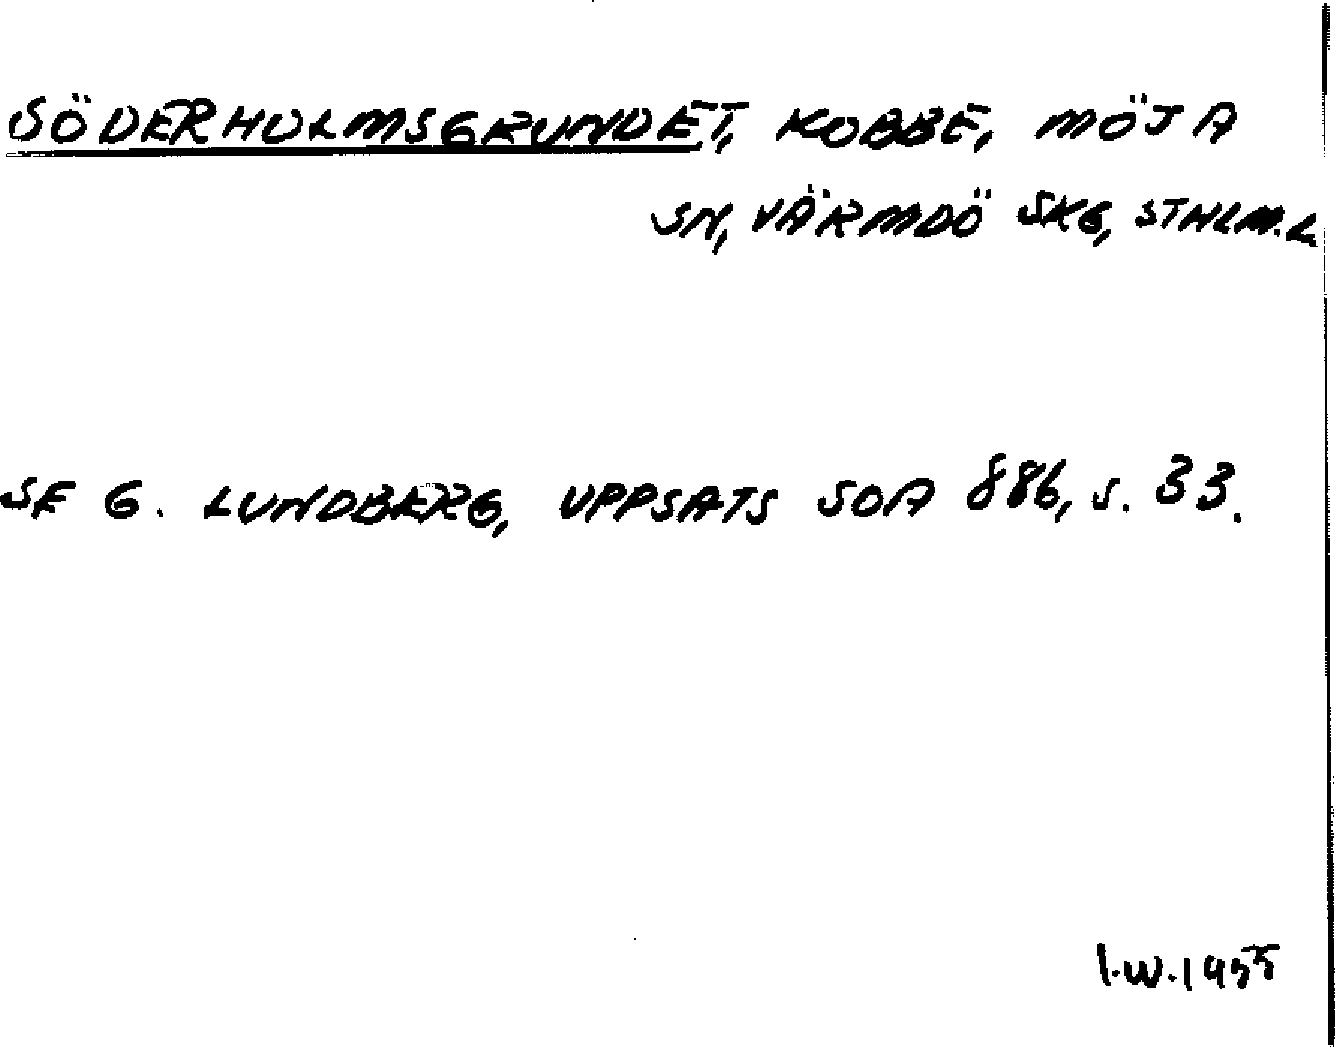 SÖDERHOLMSGRUNDET, KOBBE, MÖJA
SN, VÄRMDÖ SKG, STHLM.L.
SE G. LUNDBERG, UPPSATS SOA 886, s. 33.
I.W. 1955